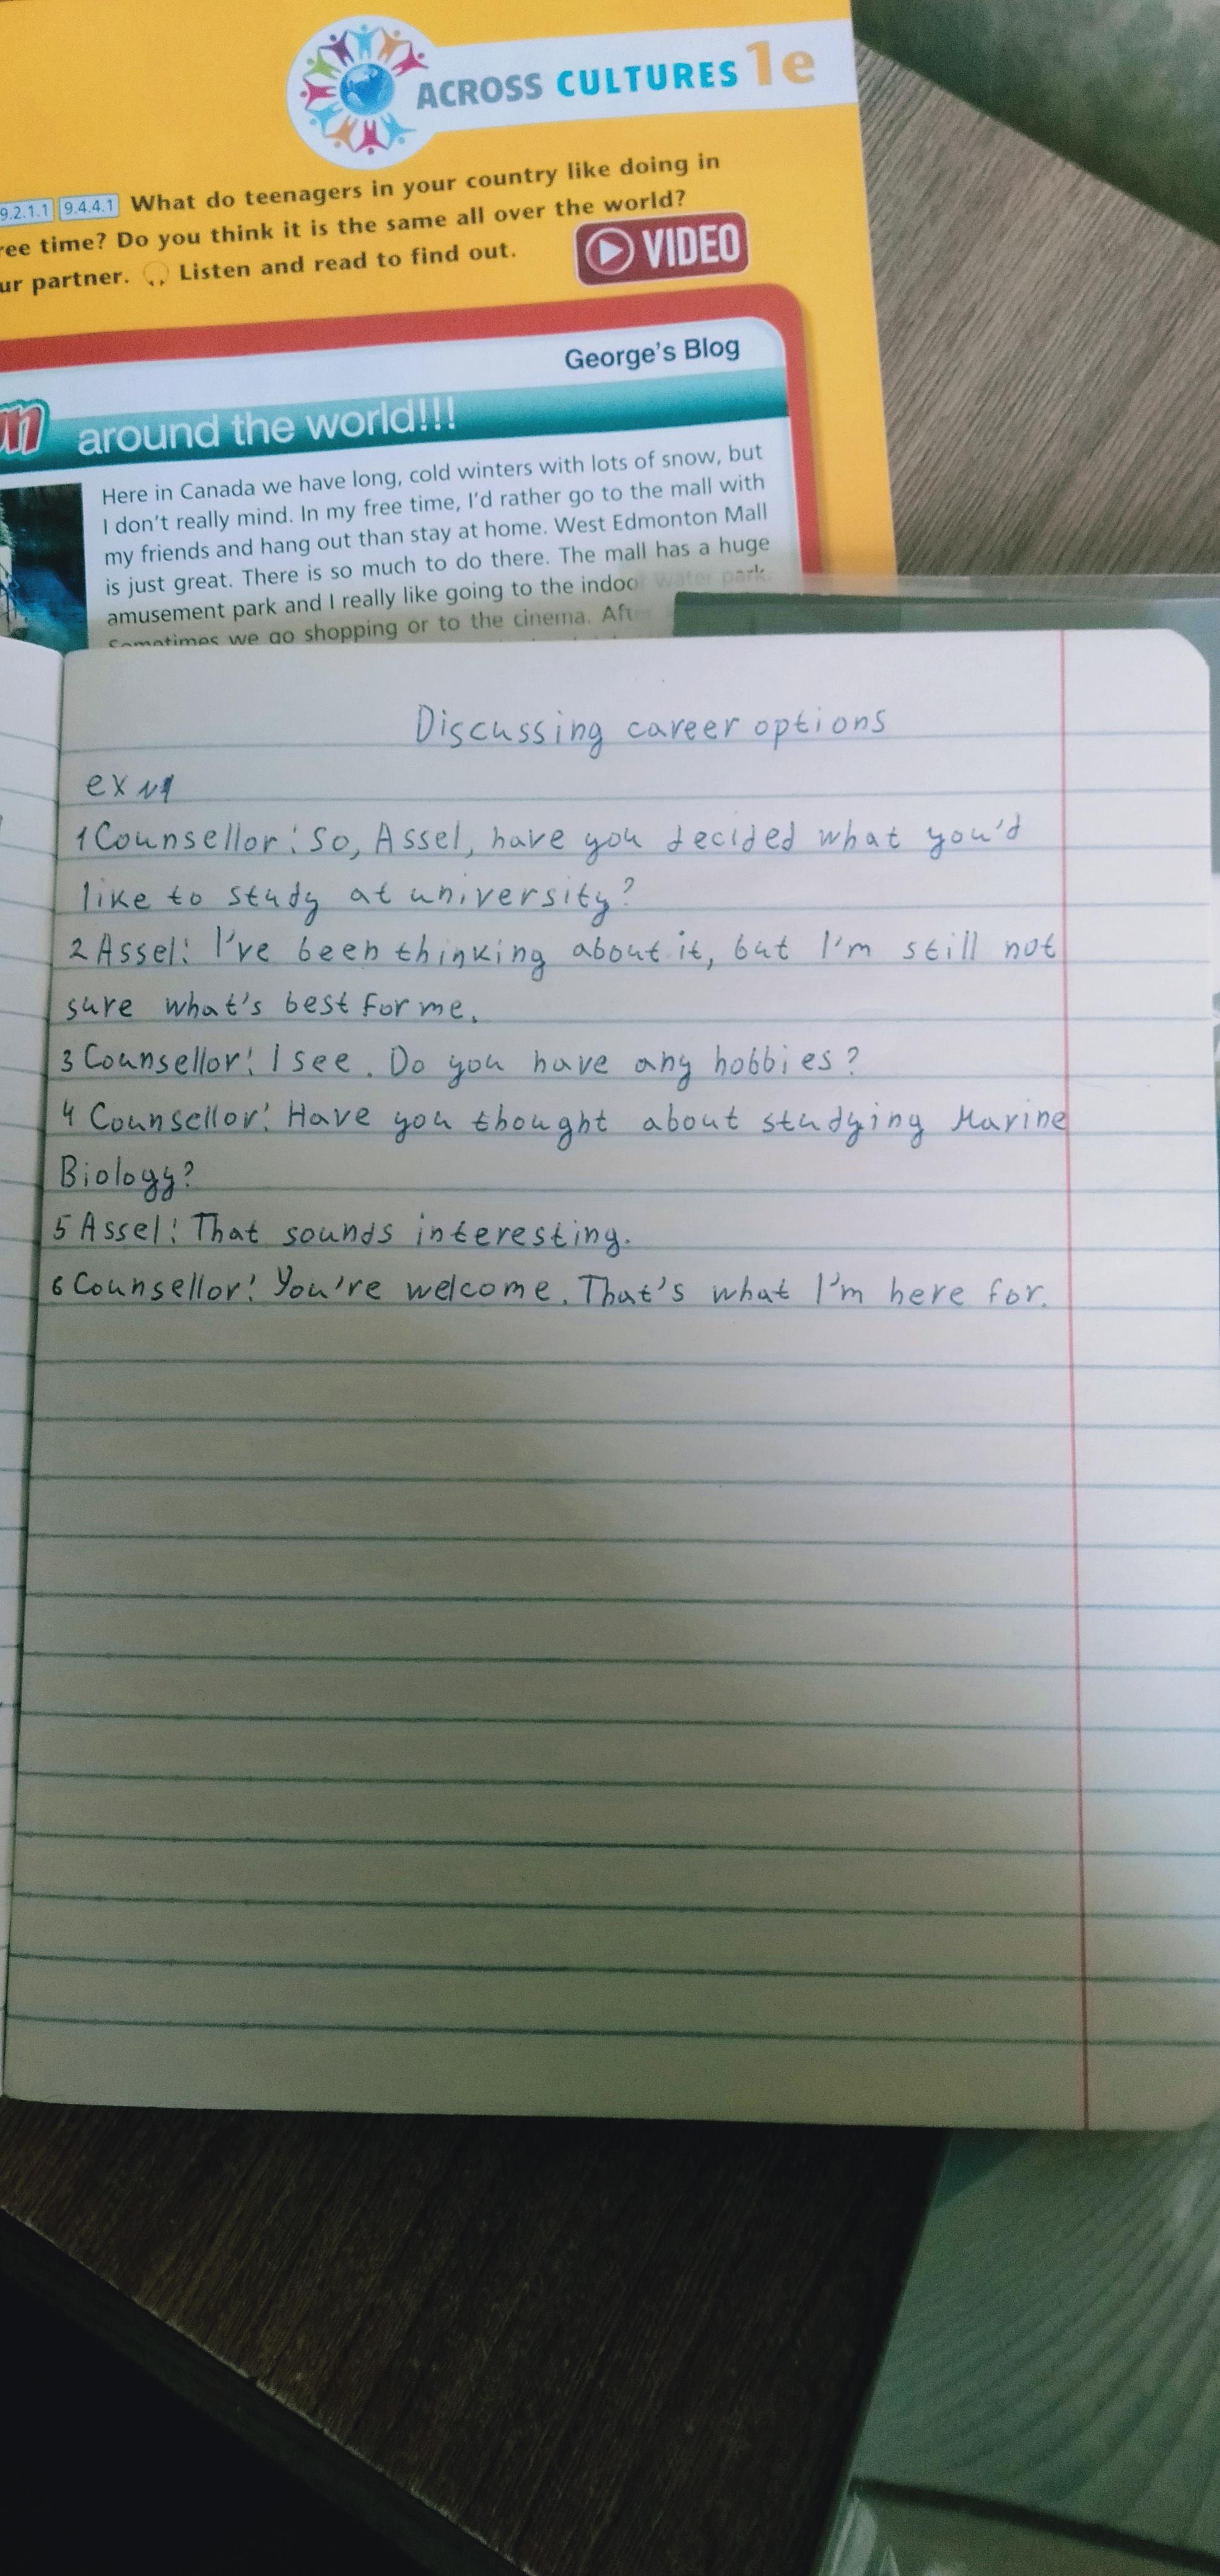 ACROSS CULTURES 1e
9.2.1.1 9.4.4.1 What do teenagers in your country like doing in
ree time? Do you think it is the same all over the world?
ur partner. Listen and read to find out.
VIDEO
George's Blog
un around the world!!!
Here in Canada we have long, cold winters with lots of snow, but
I don't really mind. In my free time, I'd rather go to the mall with
my friends and hang out than stay at home. West Edmonton Mall
is just great. There is so much to do there. The mall has a huge
amusement park and I really like going to the indoor water park.
Sometimes we go shopping or to the cinema. Afte
Discussing career options
ex №1
1 Counsellor: So, Assel, have you decided what you'd
like to study at university?
2 Assel: I've been thinking about it, but I'm still not
sure what's best for me.
3 Counsellor: I see. Do you have any hobbies?
4 Counsellor: Have you thought about studying Marine
Biology?
5 Assel: That sounds interesting.
6 Counsellor: You're welcome. That's what I'm here for.